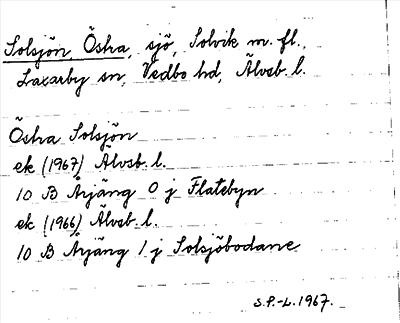 Solsjön, Östra, sjö, Solvik m. fl.,
Laxarby sn, Vedbo hd, Älvsb. l.
Östra Solsjön
ek (1967) Älvsb. l.
10 B Årjäng 0 j Flatebyn
ek (1966) Älvsb. l.
10 B Årjäng 1 j Solsjöbodane
S.P.-L. 1967.